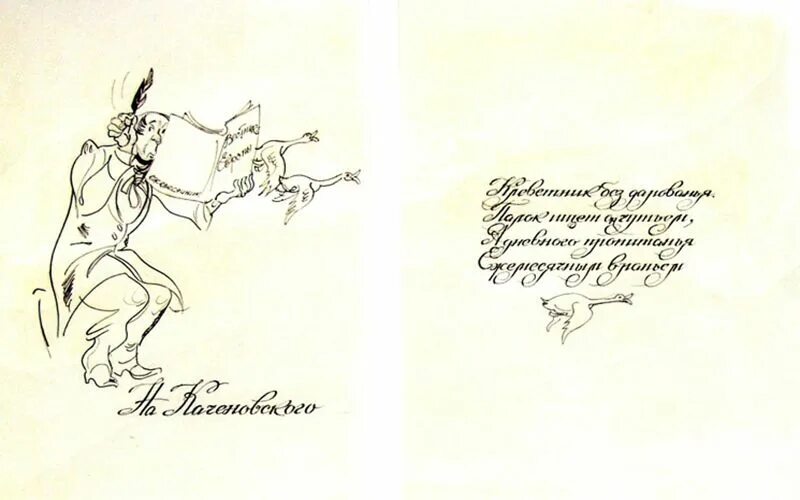 Вестник
Европы
На Каченовского
Клеветник без дарованья.
Палок ищет он чутьем,
А дневного пропитанья
Ежемесячным враньем